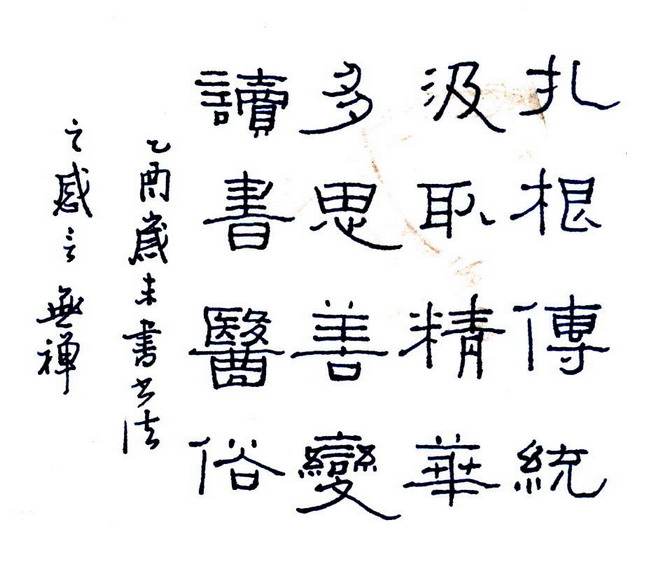 扎根傳統
汲取精華
多思善變
讀書醫俗
乙酉歲末書书法
之感言 無禪